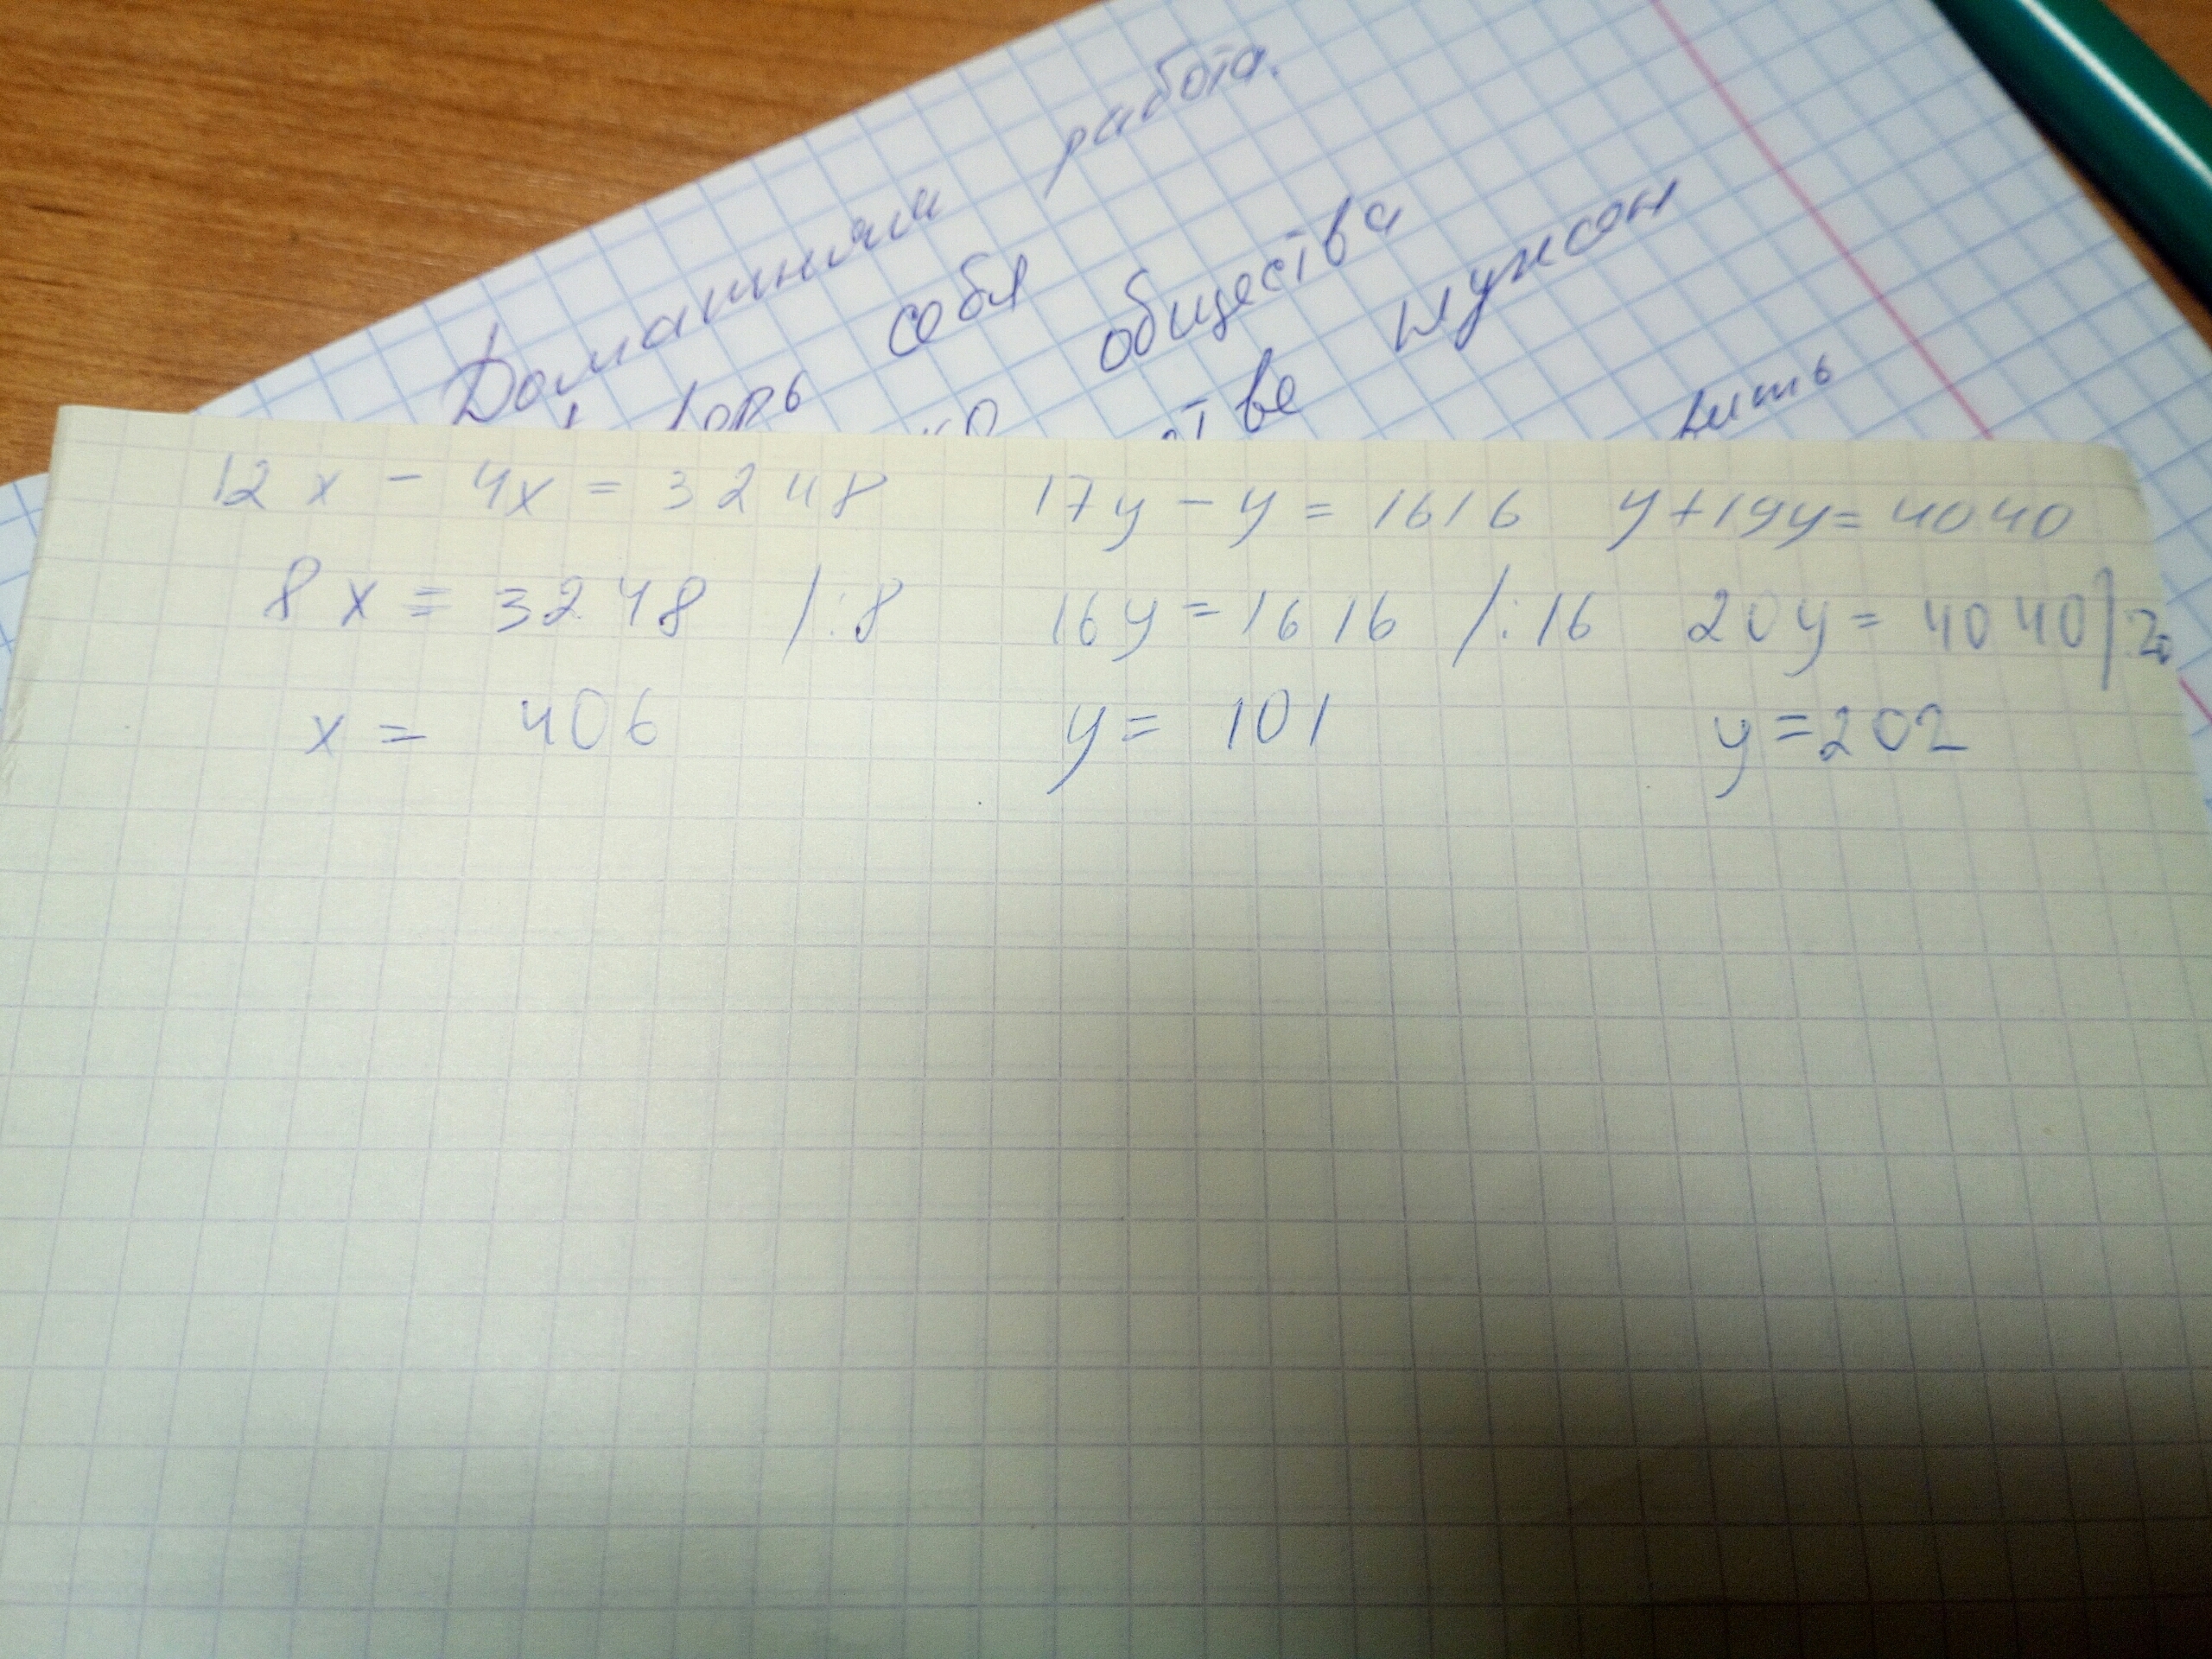 Домашняя работа.
себя общества
нужен
12x - 4x = 3248
8x = 3248 /:8
x = 406
17y - y = 1616
16y = 1616 /:16
y = 101
y+19y=4040
20y = 4040|:20
y=202